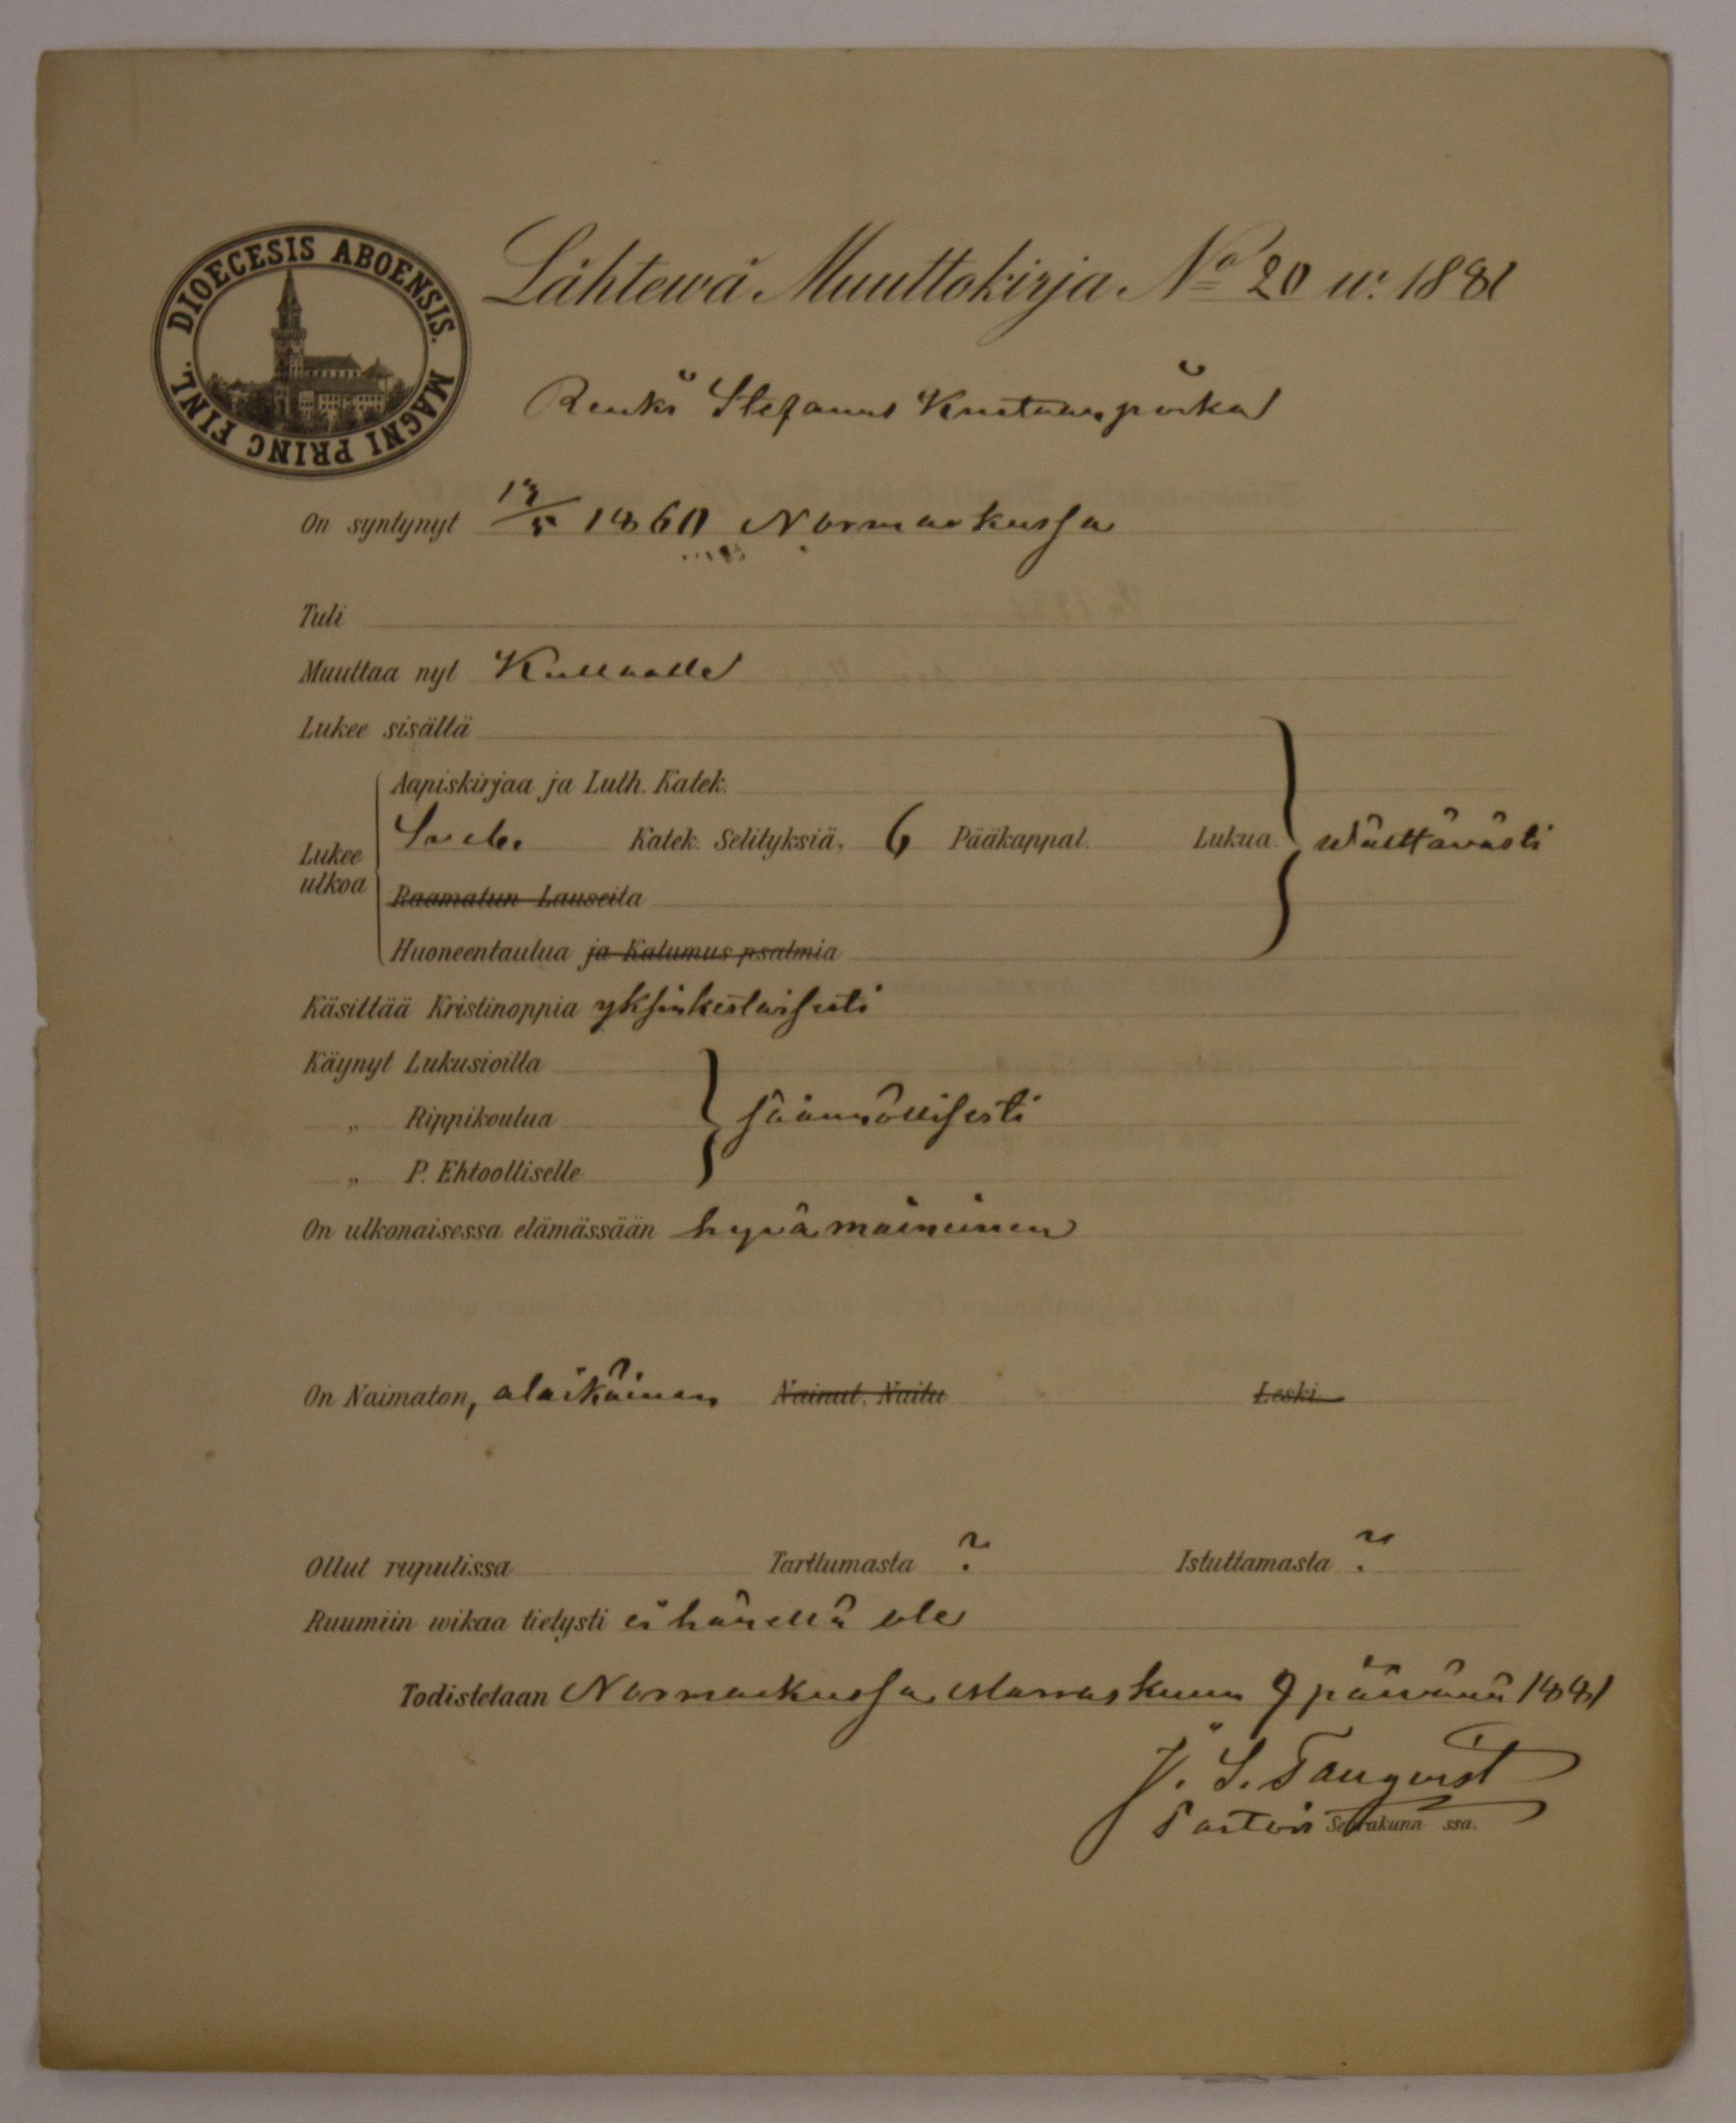 DIOECESIS ABOENSIS. MAGNI PRINC FINL.
Lähtewä Muuttokirja No 20 w. 1881
Renki Stefanus Kustaanpoika
On syntynyt 17/5 1860 Normarkussa
Tuli
Muuttaa nyt Kullaalle
Lukee sisältä
Aapiskirjaa ja Luth. Katek.
Lukee ulkoa Sveb. Katek. Selityksiä, 6 Pääkappal. Lukua. wälttävästi
Raamatun Lauseita
Huoneentaulua ja Katumus psalmia
Käsittää Kristinoppia yksinkertaisesti
Käynyt Lukusioilla
„ Rippikoulua säännöllisesti
„ P. Ehtoolliselle
On ulkonaisessa elämässään hyvämaineinen
On Naimaton, alaikäinen Nainut, Naitu Leski
Ollut rupulissa Tarttumasta ? Istuttamasta ?
Ruumiin wikaa tietysti ei hänellä ole
Todistetaan Normarkussa Marraskuun 9 päivänä 1881
J. S. Tanqvist
Pastori Seurakunn ssa.